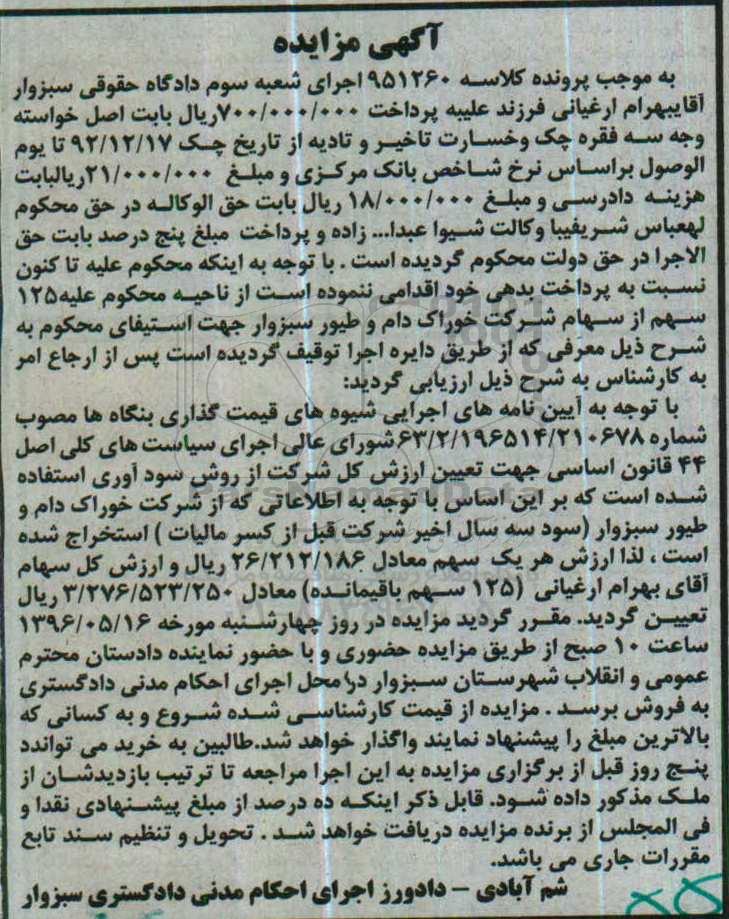 آگهی مزایده
به موجب پرونده کلاسه ۹۵۱۲۶۰ اجرای شعبه سوم دادگاه حقوقی سبزوار
آقایبهرام ارغیانی فرزند علیبه پرداخت ۷۰۰/۰۰۰/۰۰۰ریال بابت اصل خواسته
وجه سه فقره چک وخسارت تاخیر و تادیه از تاریخ چک ۹۲/۱۲/۱۷ تا یوم
الوصول براساس نرخ شاخص بانک مرکزی و مبلغ ۲۱/۰۰۰/۰۰۰ریالبابت
هزینه دادرسی و مبلغ ۱۸/۰۰۰/۰۰۰ ریال بابت حق الوکاله در حق محکوم
لهعباس شریفیبا وکالت شیوا عبدا... زاده و پرداخت مبلغ پنج درصد بابت حق
الاجرا در حق دولت محکوم گردیده است . با توجه به اینکه محکوم علیه تا کنون
نسبت به پرداخت بدهی خود اقدامی ننموده است از ناحیه محکوم علیه۱۲۵
سهم از سهام شرکت خوراک دام و طیور سبزوار جهت استیفای محکوم به
شرح ذیل معرفی که از طریق دایره اجرا توقیف گردیده است پس از ارجاع امر
به کارشناس به شرح ذیل ارزیابی گردید:
با توجه به آیین نامه های اجرایی شیوه های قیمت گذاری بنگاه ها مصوب
شماره ۶۳/۲/۱۹۶۵۱۴/۲۱۰۶۷۸شورای عالی اجرای سیاست های کلی اصل
۴۴ قانون اساسی جهت تعیین ارزش کل شرکت از روش سود آوری استفاده
شده است که بر این اساس با توجه به اطلاعاتی که از شرکت خوراک دام و
طیور سبزوار (سود سه سال اخیر شرکت قبل از کسر مالیات ) استخراج شده
است ، لذا ارزش هر یک سهم معادل ۲۶/۲۱۲/۱۸۶ ریال و ارزش کل سهام
آقای بهرام ارغیانی (۱۲۵ سهم باقیمانده) معادل ۳/۲۷۶/۵۲۳/۲۵۰ ریال
تعیین گردید. مقرر گردید مزایده در روز چهارشنبه مورخه ۱۳۹۶/۰۵/۱۶
ساعت ۱۰ صبح از طریق مزایده حضوری و با حضور نماینده دادستان محترم
عمومی و انقلاب شهرستان سبزوار در محل اجرای احکام مدنی دادگستری
به فروش برسد . مزایده از قیمت کارشناسی شده شروع و به کسانی که
بالاترین مبلغ را پیشنهاد نمایند واگذار خواهد شد.طالبین به خرید می توانند
پنج روز قبل از برگزاری مزایده به این اجرا مراجعه تا ترتیب بازدیدشان از
ملک مذکور داده شود. قابل ذکر اینکه ده درصد از مبلغ پیشنهادی نقدا و
فی المجلس از برنده مزایده دریافت خواهد شد . تحویل و تنظیم سند تابع
مقررات جاری می باشد.
شم آبادی – دادورز اجرای احکام مدنی دادگستری سبزوار